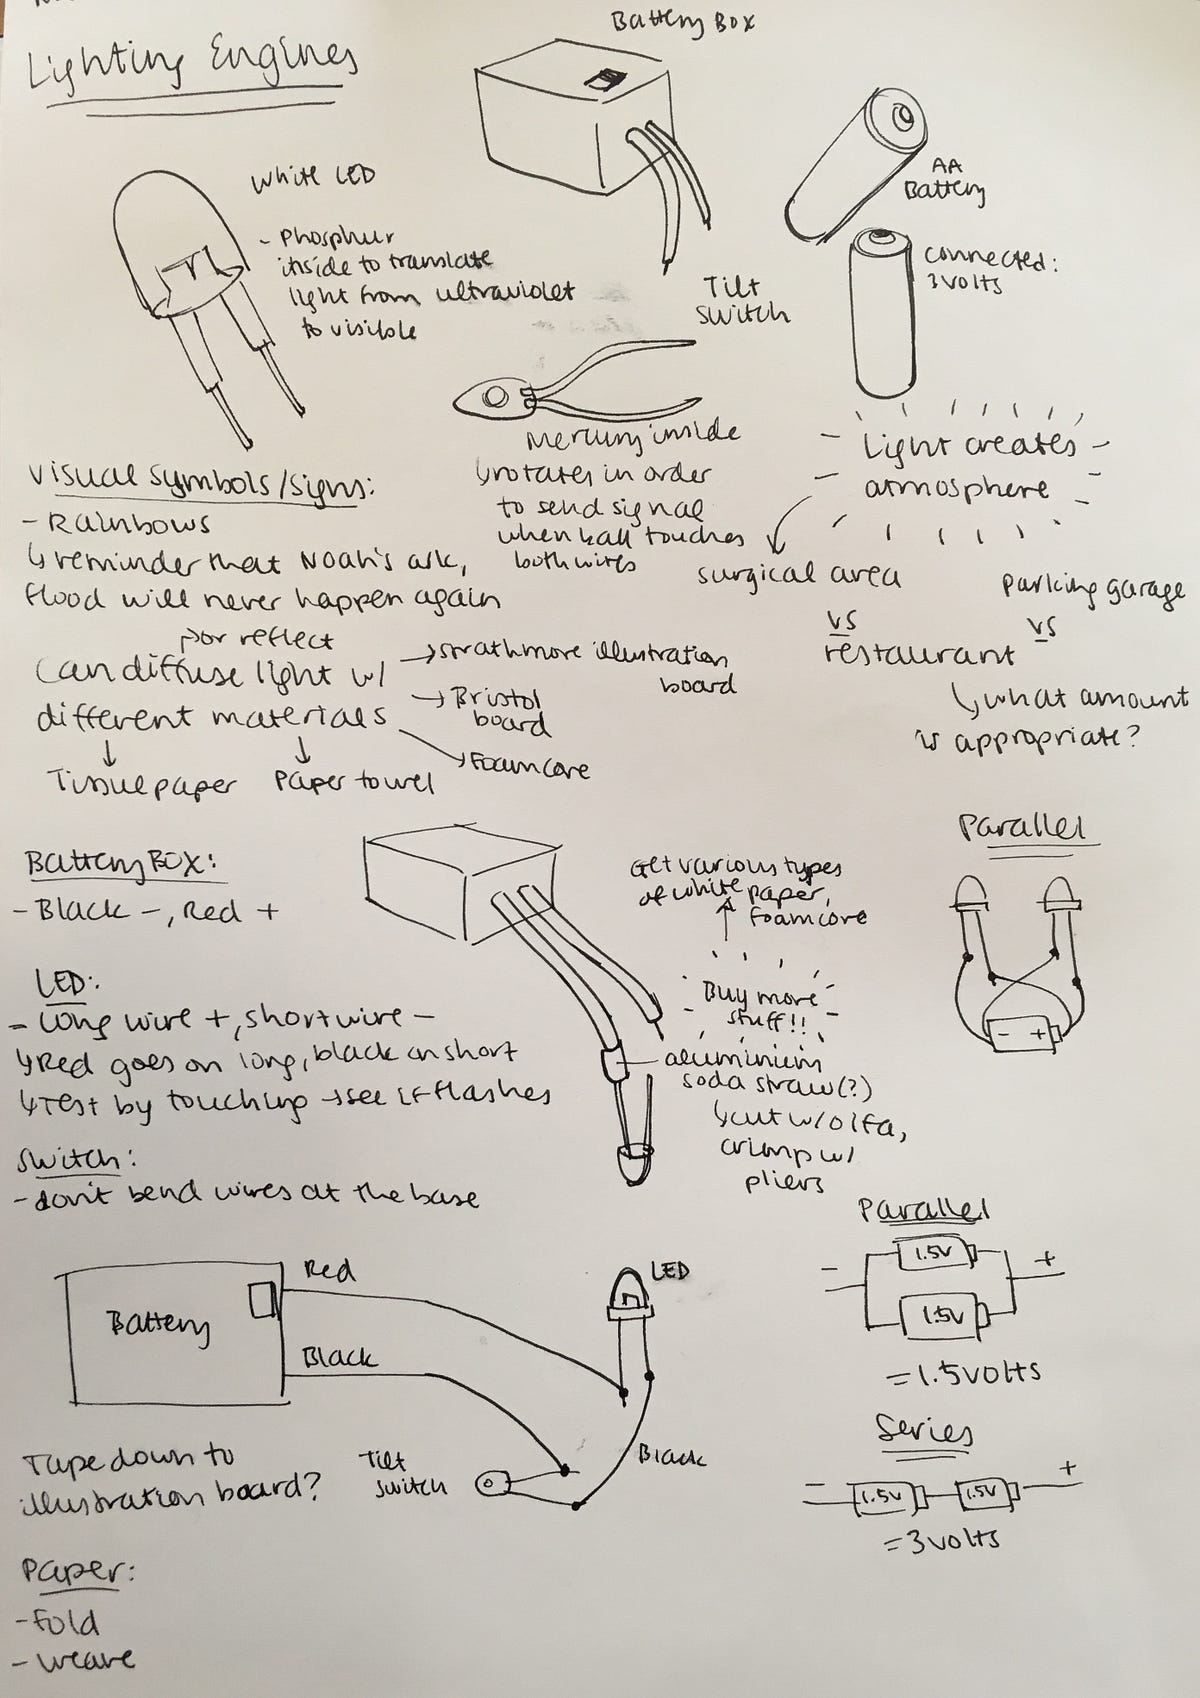 Lighting Engines
Battery Box
White LED
- Phosphur
inside to translate
light from ultraviolet
to visible
AA
Battery
connected:
3 volts
Tilt
switch
Mercury inside
↳rotates in order
to send signal
when ball touches
both wires
Light creates
atmosphere
surgical area
vs
restaurant
parking garage
vs
↳what amount
is appropriate?
Visual symbols/signs:
- Rainbows
↳reminder that Noah's ark,
flood will never happen again
↱or reflect
Can diffuse light w/
different materials
→strathmore illustration
board
→Bristol
board
↘Foamcore
↓
↓
Tissue paper
Paper towel
Battery Box:
- Black -, Red +
LED:
- Long wire +, short wire -
↳Red goes on long, black on short
↳Test by touching →see if flashes
Switch:
- don't bend wires at the base
Get various types
of white paper,
foamcore
Buy more
stuff!!
aluminium
soda straw(?)
↳cut w/ olfa,
crimp w/
pliers
Parallel
- +
Battery
Red
Black
LED
Black
Tilt
switch
Parallel
- 1.5V +
1.5V
= 1.5 volts
Series
- 1.5V 1.5V +
= 3 volts
Tape down to
illustration board?
Paper:
- Fold
- weave